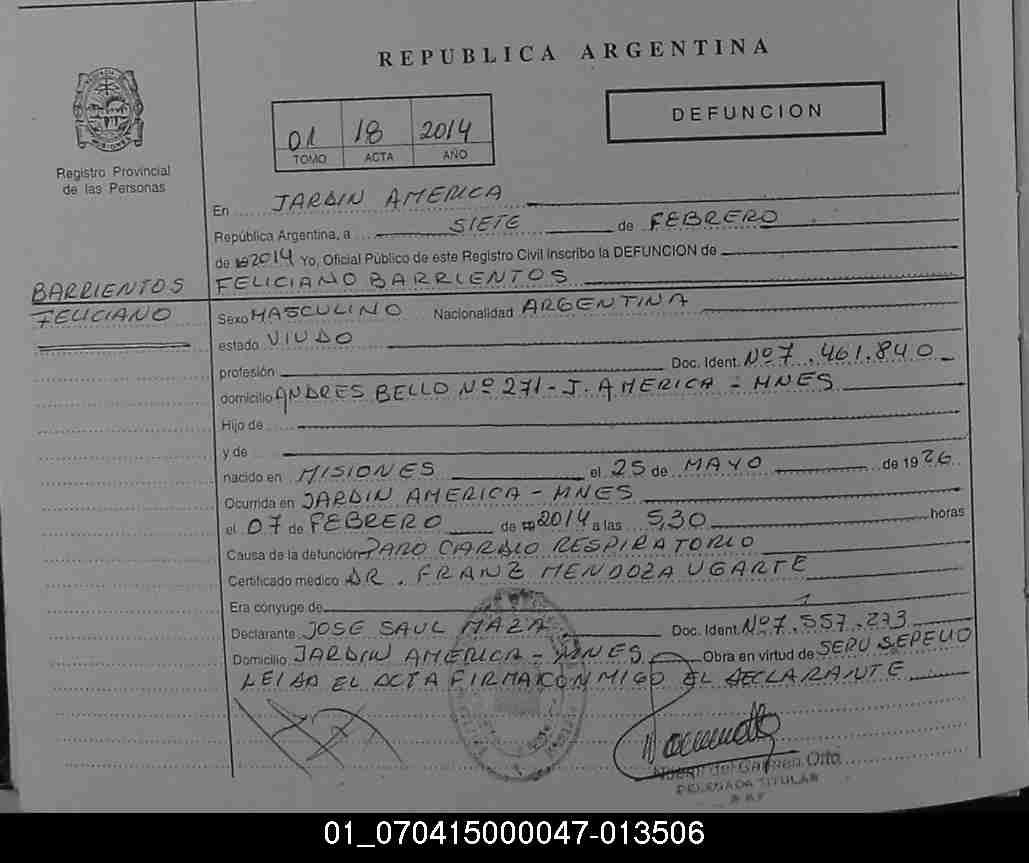 REPUBLICA ARGENTINA
DEFUNCION
01 18 2014
TOMO ACTA AÑO
Registro Provincial
de las Personas
BARRIENTOS
FELICIANO
En JARDIN AMERICA
República Argentina, a SIETE de FEBRERO
de 2014 Yo, Oficial Público de este Registro Civil inscribo la DEFUNCION de
FELICIANO BARRIENTOS
Sexo MASCULINO Nacionalidad ARGENTINA
estado VIUDO
profesión Doc. Ident. Nº 7.461.840
domicilio ANDRES BELLO Nº 271 - J. AMERICA - MNES
Hijo de
y de
nacido en MISIONES el 25 de MAYO de 1926
Ocurrida en JARDIN AMERICA - MNES
el 07 de FEBRERO de 2014 a las 5,30 horas
Causa de la defunción PARO CARDIO RESPIRATORIO
Certificado médico DR. FRANZ MENDOZA UGARTE
Era cónyuge de
Declarante JOSE SAUL MAZA Doc. Ident. Nº 7.557.273
Domicilio JARDIN AMERICA - MNES Obra en virtud de SERV SEPELIO
LEIDA EL ACTA FIRMA CONMIGO EL DECLARANTE
del Carmen Otto
DELEGADA TITULAR
01_070415000047-013506